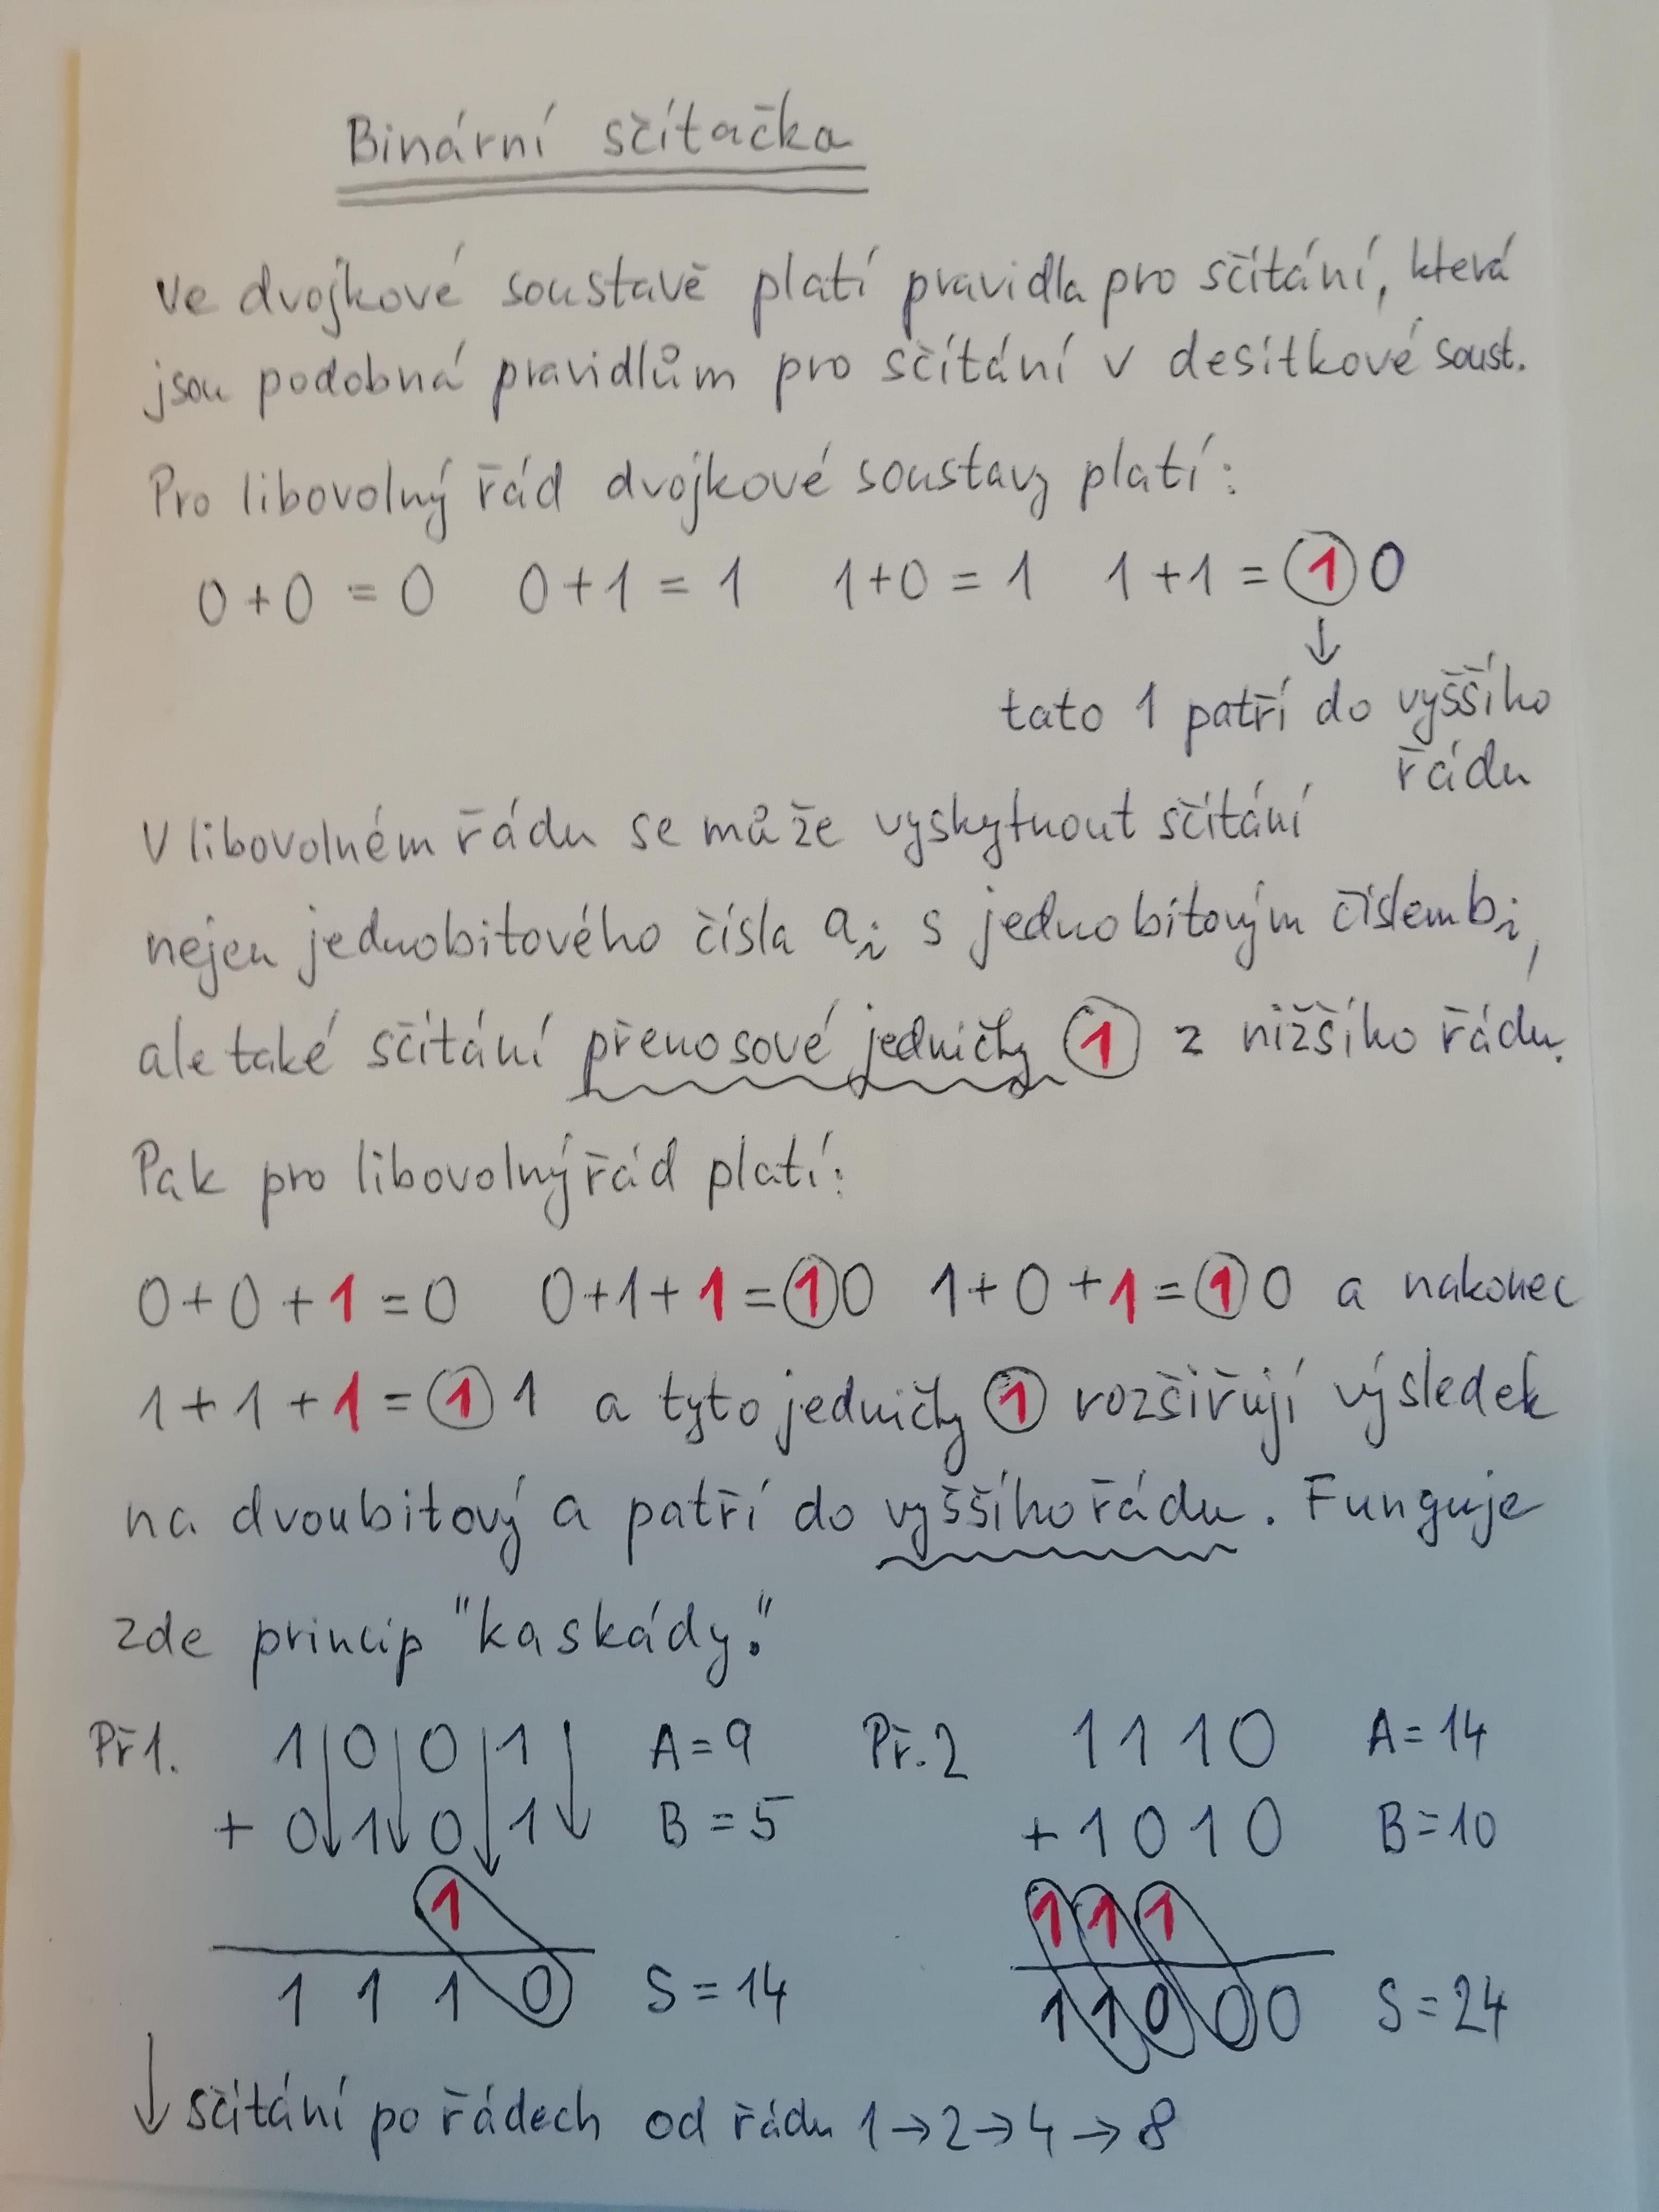 Binární sčítačka
Ve dvojkové soustavě platí pravidla pro sčítání, která
jsou podobná pravidlům pro sčítání v desítkové soust.
Pro libovolný řád dvojkové soustavy platí:
0+0=0 0+1=1 1+0=1 1+1=10
↓
tato 1 patří do vyššího
řádu
V libovolném řádu se může vyskytnout sčítání
nejen jednobitového čísla ai s jednobitovým číslem bi,
ale také sčítání přenosové jedničky 1 z nižšího řádu.
Pak pro libovolný řád platí:
0+0+1=0 0+1+1=10 1+0+1=10 a nakonec
1+1+1=11 a tyto jedničky 1 rozšiřují výsledek
na dvoubitový a patří do vyššího řádu. Funguje
zde princip "kaskády."
Př1. 1 0 0 1 A=9 Př.2 1110 A=14
+ 0 1 0 1 B=5 +1010 B=10
1 111
1 1 1 0 S=14 11000 S=24
↓ sčítání po řádech od řádu 1→2→4→8